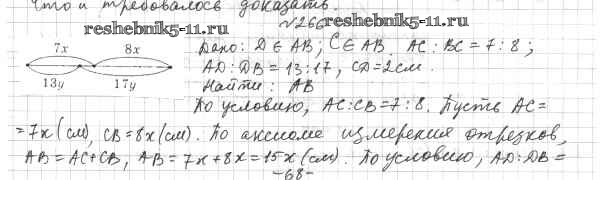 Что и требовалось доказать.
reshebnik5-11.ru
№266 reshebnik5-11.ru
7x 8x
13y 17y
Дано: D ∈ AB; C ∈ AB. AC : BC = 7 : 8;
AD : DB = 13 : 17, CD = 2 см.
Найти: AB
По условию, AC : CB = 7 : 8. Пусть AC =
= 7x (см), CB = 8x (см). По аксиоме измерения отрезков,
AB = AC + CB, AB = 7x + 8x = 15x (см). По условию, AD : DB =
-68-